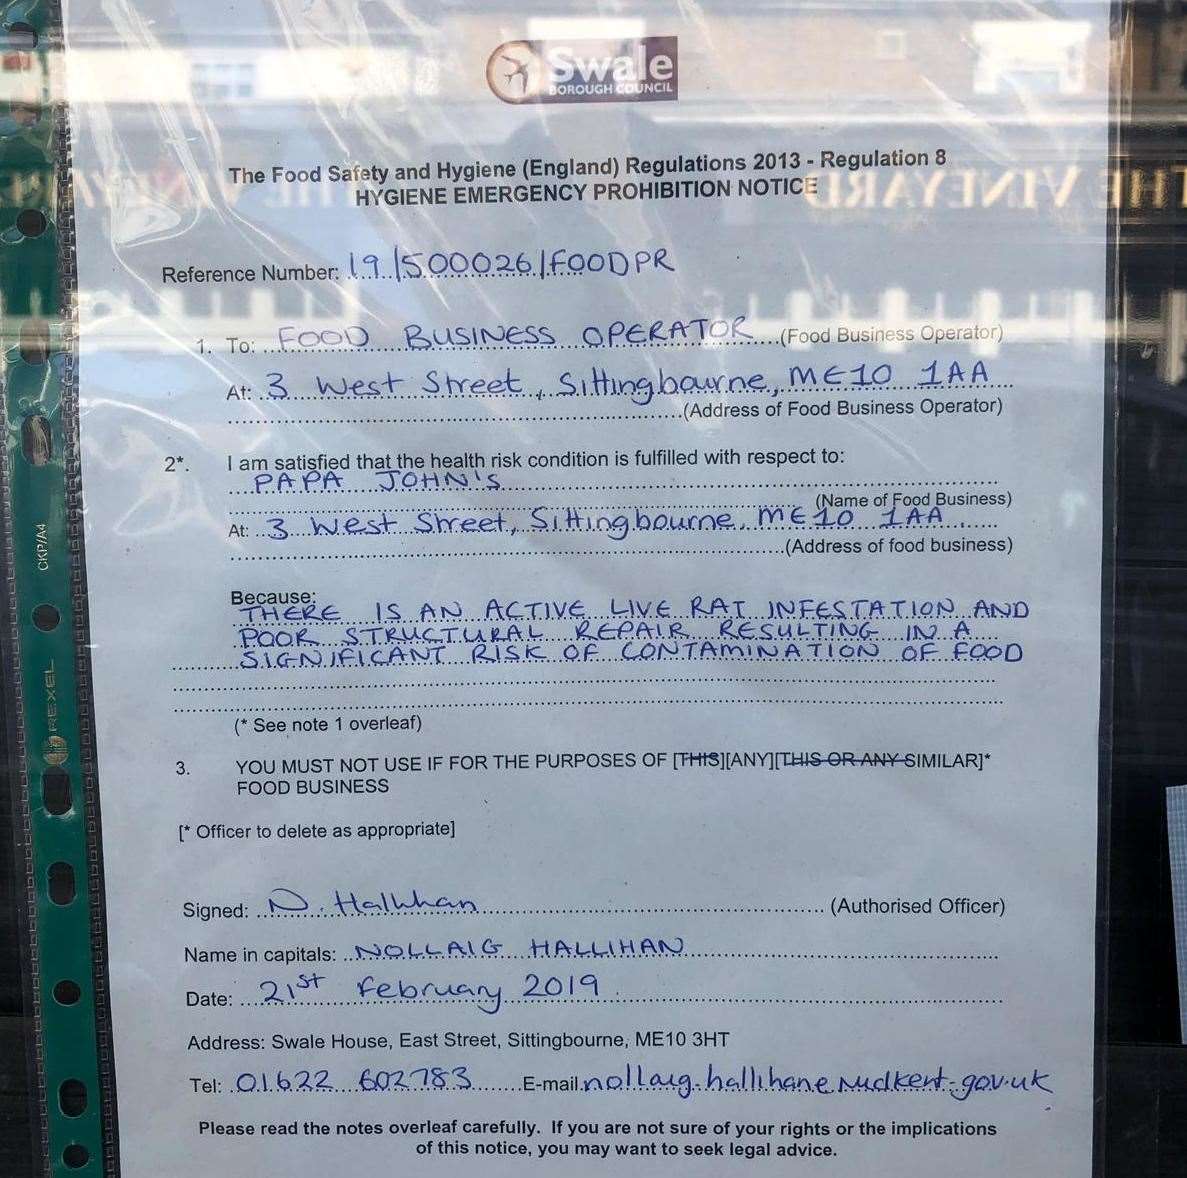 Swale
BOROUGH COUNCIL
The Food Safety and Hygiene (England) Regulations 2013 - Regulation 8
HYGIENE EMERGENCY PROHIBITION NOTICE
THE VINEYARD
Reference Number: 19/500026/FOODPR
1. To: FOOD BUSINESS OPERATOR (Food Business Operator)
At: 3 West Street, Sittingbourne, ME10 1AA
(Address of Food Business Operator)
2*. I am satisfied that the health risk condition is fulfilled with respect to:
PAPA JOHN'S
(Name of Food Business)
At: 3 West Street, Sittingbourne, ME10 1AA
(Address of food business)
Because:
THERE IS AN ACTIVE LIVE RAT INFESTATION AND
POOR STRUCTURAL REPAIR RESULTING IN A
SIGNIFICANT RISK OF CONTAMINATION OF FOOD
(* See note 1 overleaf)
3. YOU MUST NOT USE IF FOR THE PURPOSES OF [THIS][ANY][THIS OR ANY SIMILAR]*
FOOD BUSINESS
[* Officer to delete as appropriate]
Signed: N. Hallihan (Authorised Officer)
Name in capitals: NOLLAIG HALLIHAN
Date: 21st February 2019
Address: Swale House, East Street, Sittingbourne, ME10 3HT
Tel: 01622 602783 E-mail nollaig.hallihan@midkent.gov.uk
Please read the notes overleaf carefully. If you are not sure of your rights or the implications
of this notice, you may want to seek legal advice.
CKP/A4
REXEL